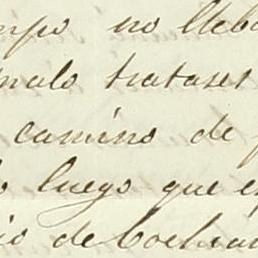 mpo no lleb
malo tratases
camino de
luego que e
io de Cochin